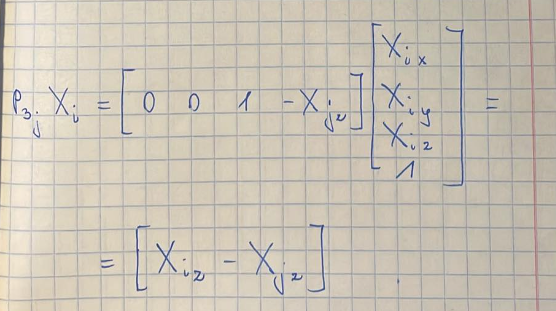 P_{3_j} X_i = [ 0 0 1 -X_{jz} ] [ X_{ix} X_{iy} X_{iz} 1 ] =
= [ X_{iz} - X_{jz} ]